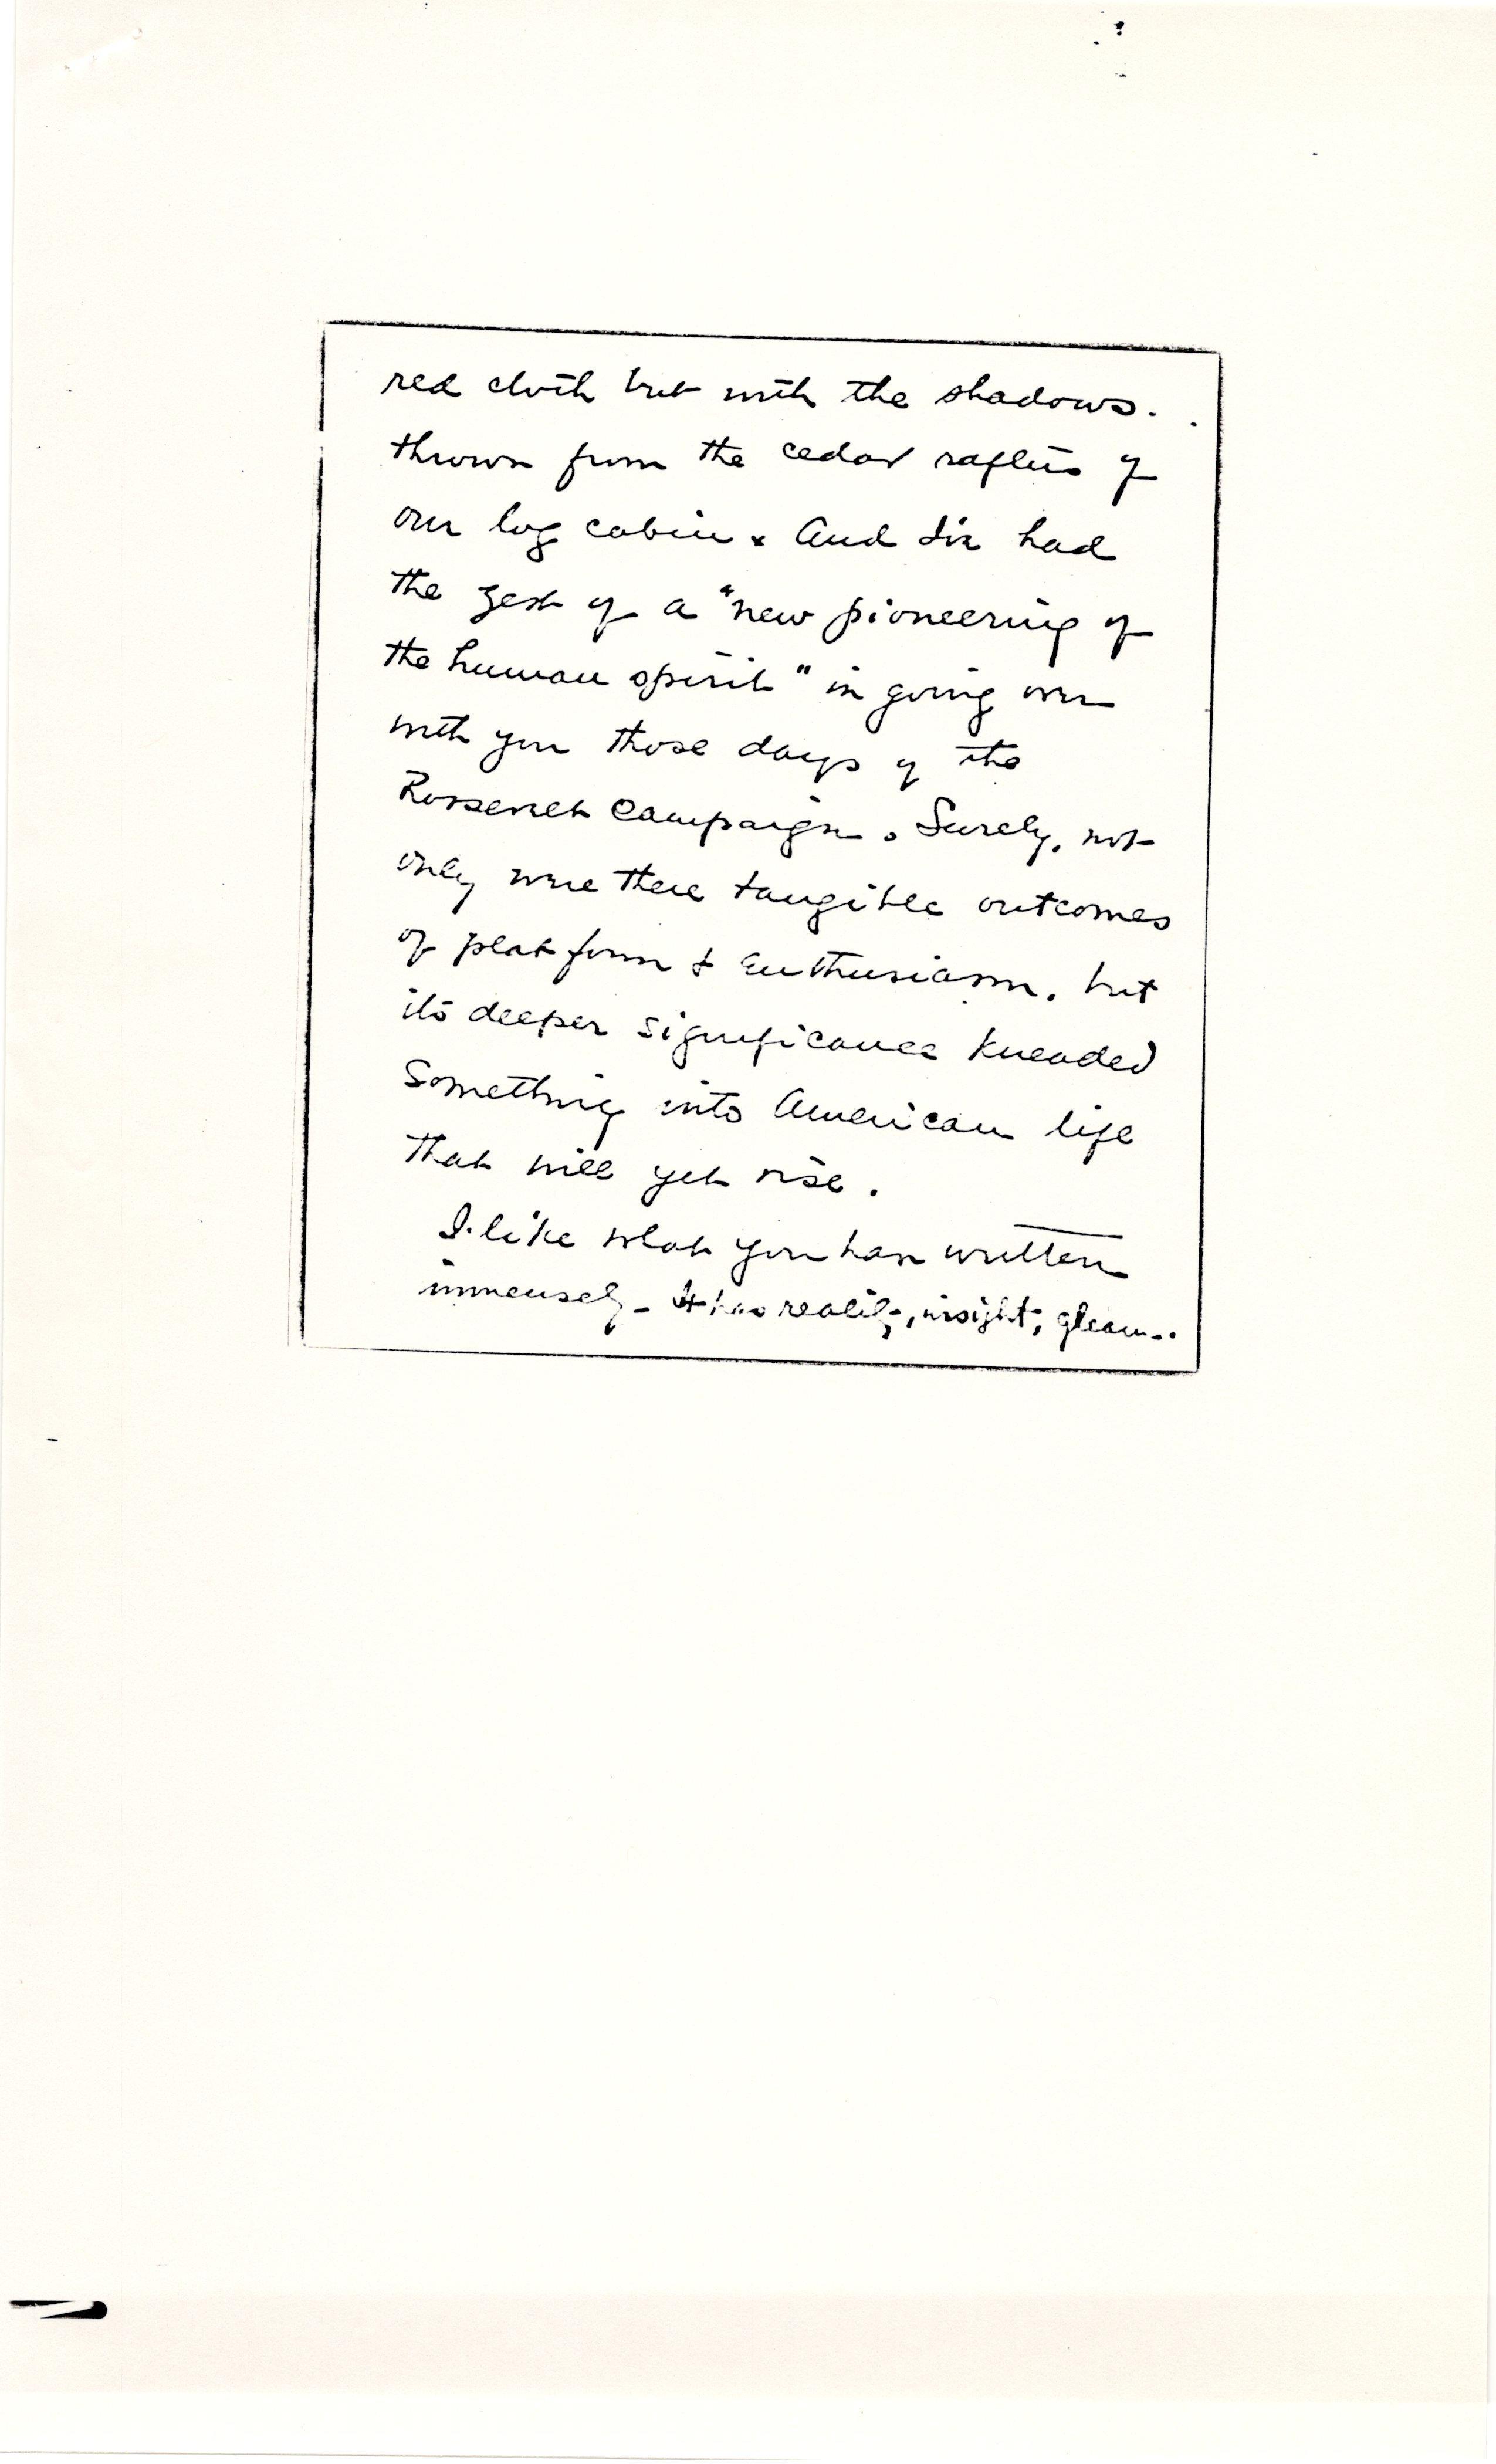 red cloth but with the shadows.
thrown from the cedar rafters of
our log cabin. And I've had
the zest of a "new pioneering of
the human spirit" in going over
with you those days of the
Roosevelt Campaign. Surely, not
only were there tangible outcomes
of platform & enthusiasm, but
its deeper significance kneaded
something into American life
that will yet rise.
I like what you have written
immensely - It has reality, insight, gleam..